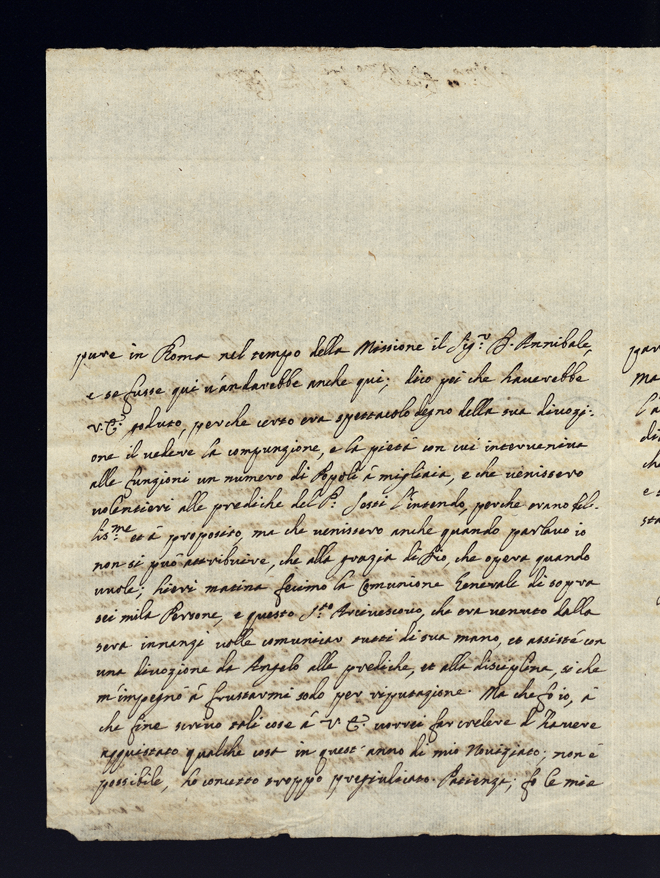 pure in Roma nel tempo della Missione il Sig.r D. Annibale,
e se fusse qui v'andarebbe anche qui; dico poi che haverebbe
V. E. goduto, perche certo era spettacolo degno della sua divozi:
one il vedere la compunzione, e la pietà con cui interveniva
alle funzioni un numero di Popoli à migliaia, e che venissero
volentieri alle prediche del P. l'intendo, perche erano bel-
lis.me et à proposito, ma che venissero anche quando parlavo io
non si può attribuire, che alla grazia di Dio, che opera quando
vuole; hieri matina fecimo la Comunione Generale di sopra
sei mila Persone, e questo Arcivescovo, che era venuto dalla
sera innanzi volle comunicar tutti di sua mano, et assisté con
una divozione da Angelo alle prediche, et alla disciplina, si che
m'impegnò à frustarmi sodo per riputazione. Ma che fo io, à
che fine scrivo tali cose à V. E. vorrei far credere d'havere
acquistato qualche cosa in quest'anno di mio Noviziato; non è
possibile, ho concetto troppo pregiudicato. Pazienza; fo le mie
par
ma
l'a
di
che
e
sta